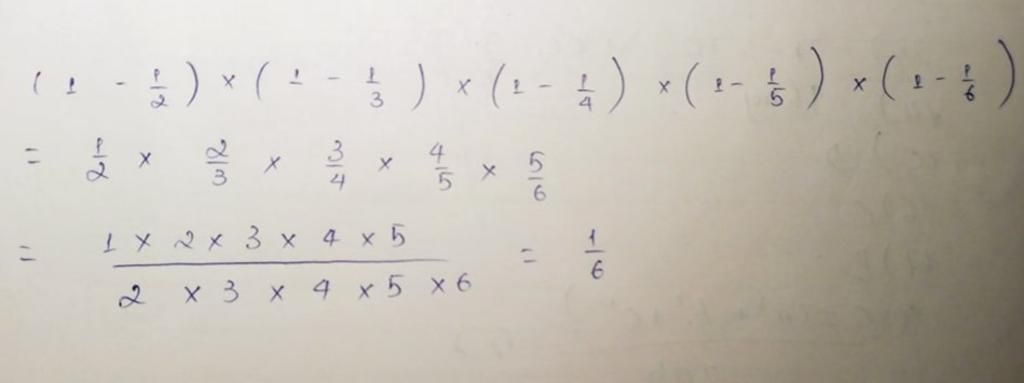 (1 - 1/2) × (1 - 1/3) × (1 - 1/4) × (1 - 1/5) × (1 - 1/6)
= 1/2 × 2/3 × 3/4 × 4/5 × 5/6
= (1 × 2 × 3 × 4 × 5)/(2 × 3 × 4 × 5 × 6) = 1/6